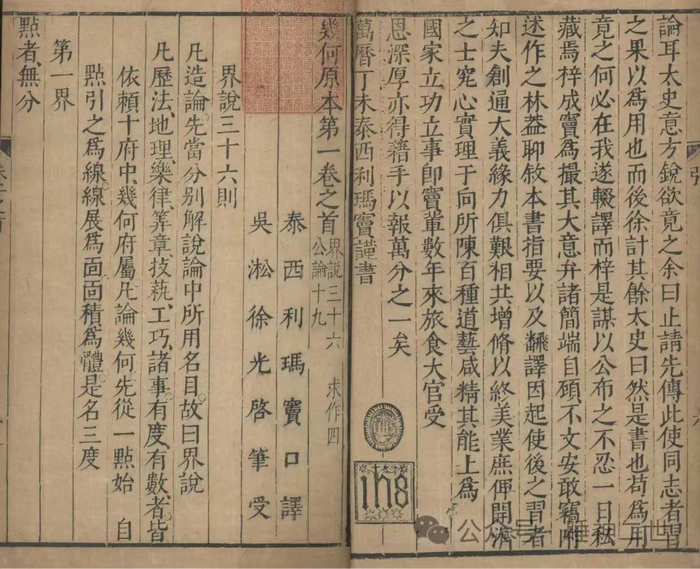 論耳太史意方銳欲竟之余曰止請先傳此使同志者習
之果以為用也而後徐計其餘太史曰然是書也苟為用
竟之何必在我遂輟譯而梓是謀以公布之不忍一日私
藏焉梓成竇為撮其大意弁諸簡端自顧不文安敢竊附
述作之林葢聊敘本書指要以及飜譯因起使後之習者
知夫創通大義緣力俱艱相共增脩以終美業庶俾開濟
之士究心實理于向所陳百種道藝咸精其能上為
國家立功立事即竇輩數年來旅食大官受
恩深厚亦得藉手以報萬分之一矣
萬曆丁未泰西利瑪竇謹書
ihs
幾何原本第一卷之首 界說三十六 公論十九 求作四
泰西利瑪竇口譯
吳淞徐光啓筆受
界說三十六則
凡造論先當分別解說論中所用名目故曰界說
凡歷法地理樂律筭章技藝工巧諸事有度有數者皆
依賴十府中幾何府屬凡論幾何先從一點始自
點引之為線線展為面面積為體是名三度
第一界
點者無分
公众号